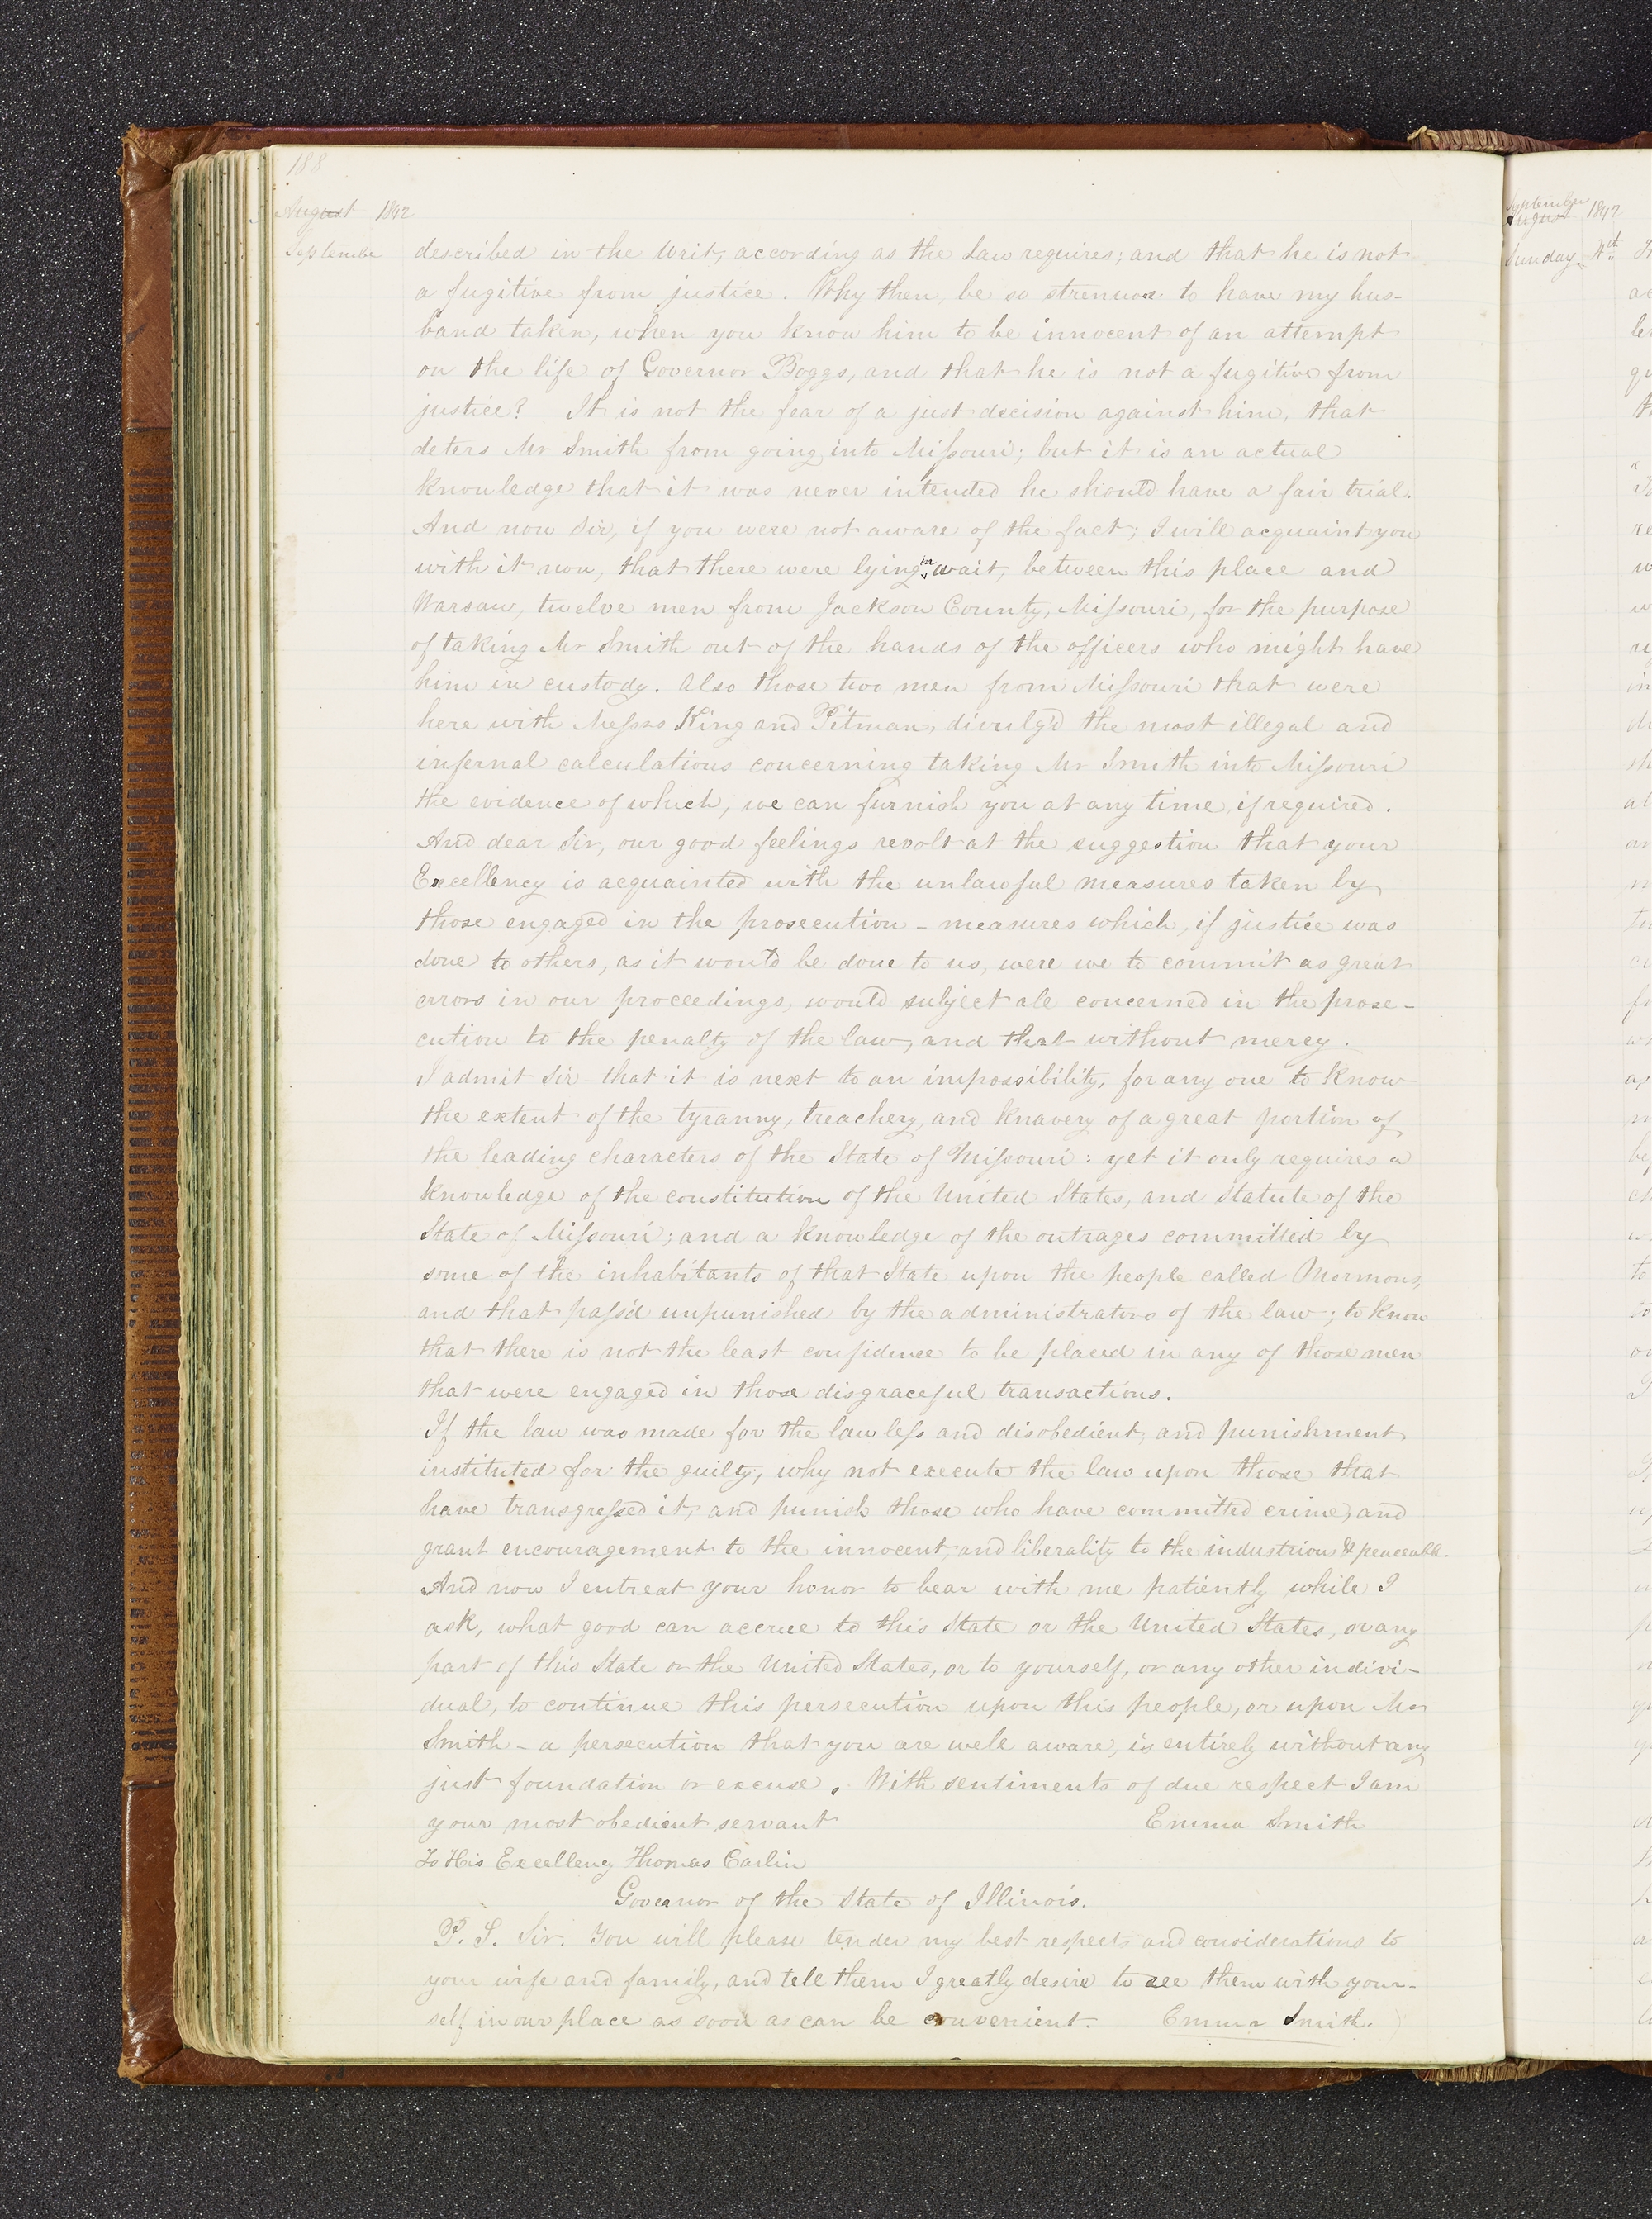 188
August 1842
September described in the Writ, according as the Law requires; and that he is not
a fugitive from justice. Why then, be so strenuous to have my hus-
band taken, when you know him to be innocent of an attempt
on the life of Governor Boggs, and that he is not a fugitive from
justice? It is not the fear of a just decision against him, that
deters Mr Smith from going into Missouri; but it is an actual
knowledge that it was never intended he should have a fair trial.
And now Sir, if you were not aware of the fact; I will acquaint you
with it now, that there were lying in wait, between this place and
Warsaw, twelve men from Jackson County, Missouri, for the purpose
of taking Mr Smith out of the hands of the officers who might have
him in custody. Also those two men from Missouri that were
here with Messrs King and Pitman, divulg'd the most illegal and
infernal calculations concerning taking Mr Smith into Missouri
the evidence of which, we can furnish you at any time, if required.
And dear Sir, our good feelings revolt at the suggestion that your
Excellency is acquainted with the unlawful measures taken by
those engaged in the prosecution - measures which, if justice was
done to others, as it would be done to us, were we to commit as great
errors in our proceedings, would subject all concerned in the prose-
cution to the penalty of the law, and that without mercy.
I admit Sir that it is next to an impossibility, for any one to know
the extent of the tyranny, treachery, and knavery of a great portion of
the leading characters of the State of Missouri: yet it only requires a
knowledge of the constitution of the United States, and Statute of the
State of Missouri; and a knowledge of the outrages committed by
some of the inhabitants of that State upon the people called Mormons,
and that pass'd unpunished by the administrators of the law; to know
that there is not the least confidence to be placed in any of those men
that were engaged in those disgraceful transactions.
If the law was made for the lawless and disobedient, and punishment
instituted for the guilty, why not execute the law upon those that
have transgressed it, and punish those who have committed crime, and
grant encouragement to the innocent, and liberality to the industrious & peaceable.
And now I entreat your honor to bear with me patiently while I
ask, what good can accrue to this State or the United States, or any
part of this State or the United States, or to yourself, or any other indivi-
dual, to continue this persecution upon this people, or upon Mr
Smith - a persecution that you are well aware, is entirely without any
just foundation or excuse. With sentiments of due respect I am
your most obedient servant Emma Smith
To His Excellency Thomas Carlin
Governor of the State of Illinois.
P. S. Sir. You will please tender my best respects and considerations to
your wife and family, and tell them I greatly desire to see them with your-
self in our place as soon as can be convenient. Emma Smith.
September
August 1842
Sunday